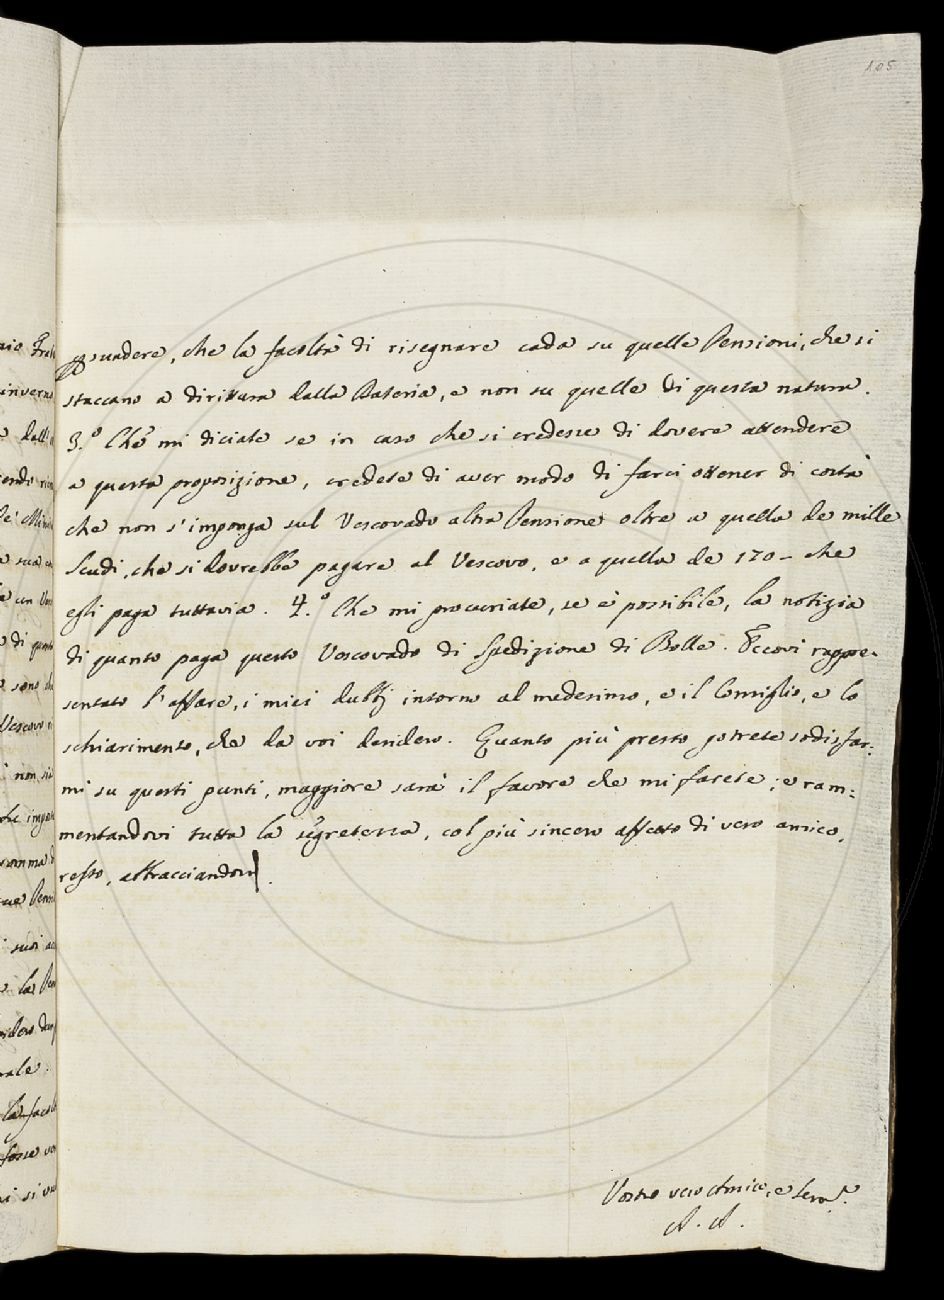 105
suadere, che la facoltà di risegnare cada su quelle Pensioni, che si
staccano a dirittura dalla Dateria, e non su quelle di questa natura.
3.º Che mi diciate se in caso che si credesse di dovere attendere
a questa proposizione, credete di aver modo di farci ottener di costà
che non s'imponga sul Vescovado altra Pensione oltre a quella de mille
Scudi, che si dovrebbe pagare al Vescovo, e a quella de 170 - che
egli paga tuttavia. 4.º Che mi procuriate, se è possibile, la notizia
di quanto paga questo Vescovado di Spedizione di Bolle. Eccovi rappre-
sentato l'affare, i miei dubbj intorno al medesimo, e il Consiglio, e lo
schiarimento, che da voi desidero. Quanto più presto potrete sodisfar:
mi su questi punti, maggiore sarà il favore che mi farete; e ram:
mentandovi tutta la segretezza, col più sincero affetto di vero amico,
resto, abbracciandovi.
Vostro vero Amico, e Serv.e
A. A.